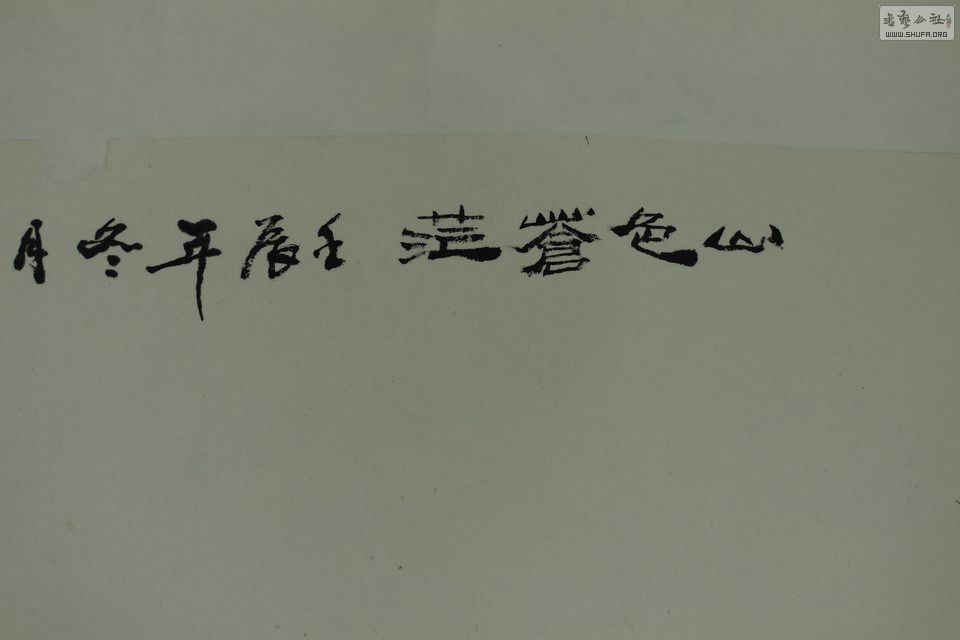 山色蒼茫 壬辰年冬月
書藝公社
WWW.SHUFA.ORG